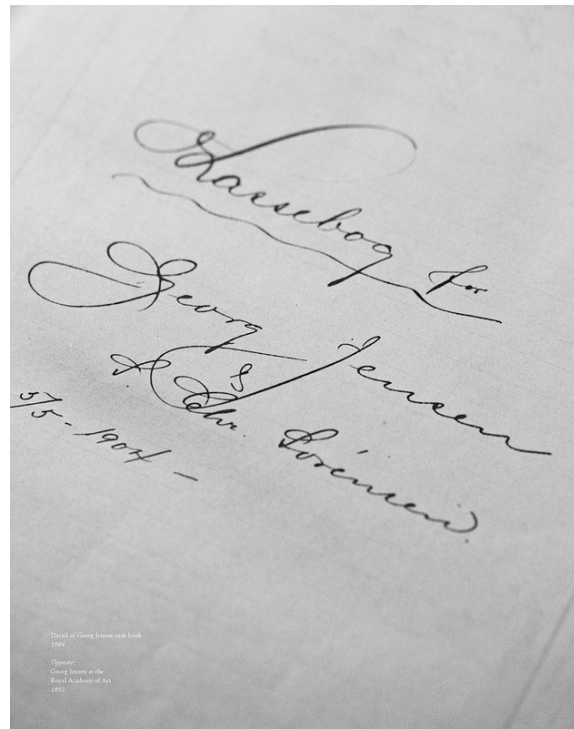 Kassebog for
Georg Jensen
&
Chr.
5/5 - 1904 -
Detail of Georg Jensen cash book
1904
Opposite
Georg Jensen at the
Royal Academy of Art
1892